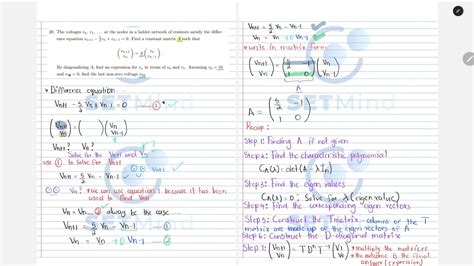 20. The voltages v₀, v₁, ... at the nodes in a ladder network of resistors satisfy the differ-
ence equation vₙ₊₁ − 5/2 vₙ + vₙ₋₁ = 0. Find a constant matrix A such that
(vₙ₊₁ vₙ) = A (vₙ vₙ₋₁)
By diagonalizing A, find an expression for vₙ in terms of v₀ and v₁. Assuming
find the last non-zero voltage
* Difference equation
Vn+1 - 5/2 Vn + Vn-1 = 0 ①
(Vn+1 Vn) = ( ) (Vn Vn-1)
Vn+1? Vn?
Solve for the Vn+1 and Vn
use ① to solve for Vn+1
Vn+1 = 5/2 Vn - Vn-1 ✓
Vn? *we can use equation 1 because it has been
used to find Vn+1
Vn = Vn always be the case
Vn = Vn + 0 Vn-1 ②
Vn+1 = 5/2 Vn - Vn-1
Vn = Vn + 0 Vn-1
*write in matrix form
(Vn+1 Vn) = (5/2 -1 1 0) (Vn Vn-1)
A
A = (5/2 -1 1 0)
Recap:
Step 1: Finding A if not given
Step 2: Find the characteristic polynomial
CA(λ) = det(A - λIn)
Step 3: Find the eigen values
CA(λ) = 0; Solve for λ (eigen value)
Step 4: Find the corresponding eigen vectors
Step 5: Construct the T matrix - columns of the T
matrix are made up of the eigen vectors of A
Step 6: Construct the D diagonal matrix
Step 7: (Vn+1 Vn) = T Dⁿ T⁻¹ (V1 V0) * multiply the matrices
* the outcome is the final
answer (expression)
SETMind